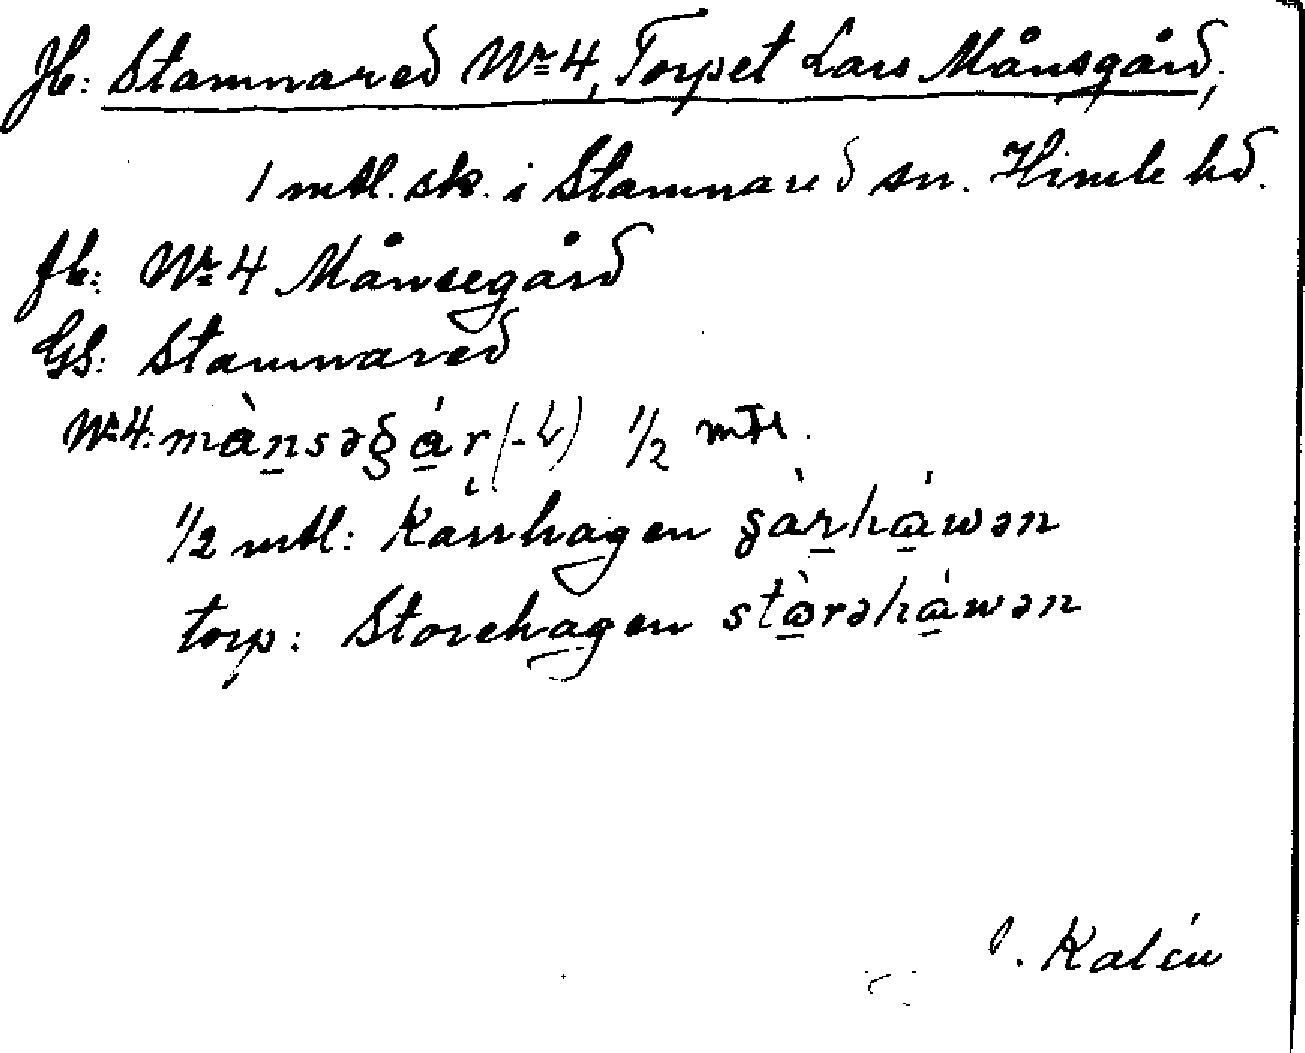 Jb: Stamnared Nr 4, Torpet Lars Månsgård,
1 mtl. sk. i Stamnared sn. Himle hd.
Jb: Nr 4 Månsegård
GS: Stamnared
Nr 4: mànsəgár 1/2 mtl.
1/2 mtl: Kärrhagen gàrháwən
torp: Storehagen stòrəháwən
Kalén